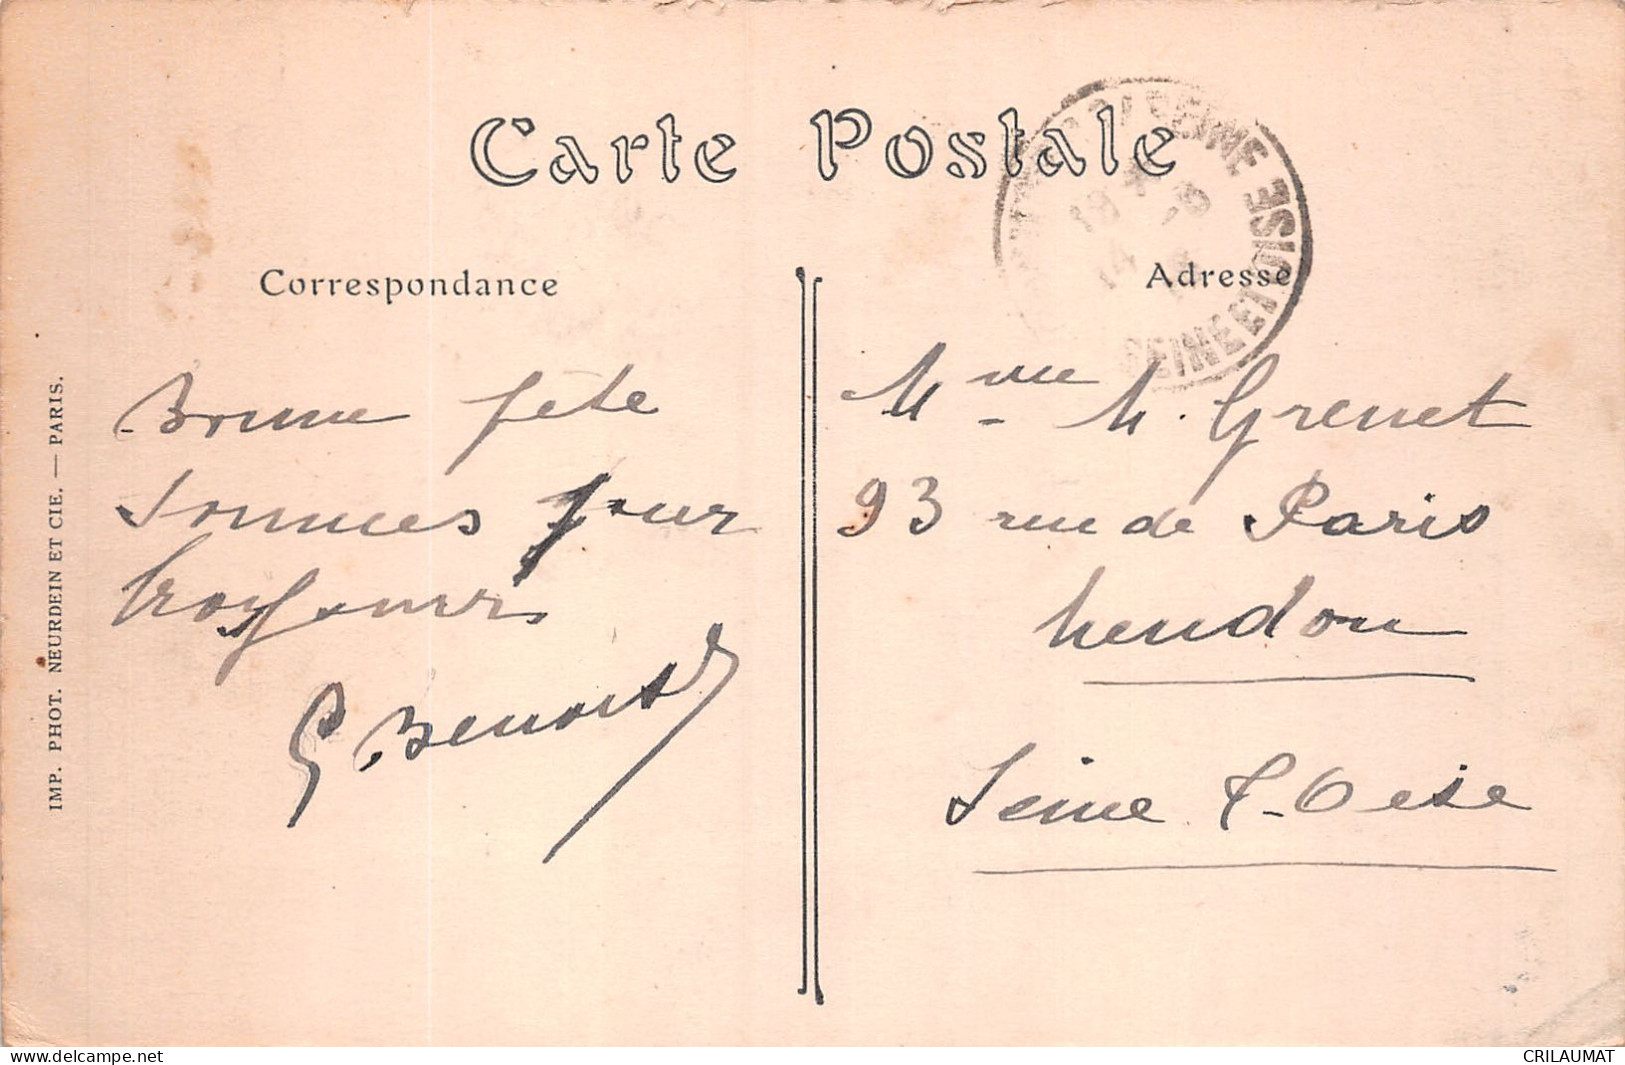 Carte Postale
Correspondance
Adresse
SEINE ET OISE
Bonne fête
Sommes pour
G Benoist
Mme M. Grenet
93 rue de Paris
Meudon
Seine & Oise
IMP. PHOT. NEURDEIN ET CIE. — PARIS.
www.delcampe.net
CRILAUMAT